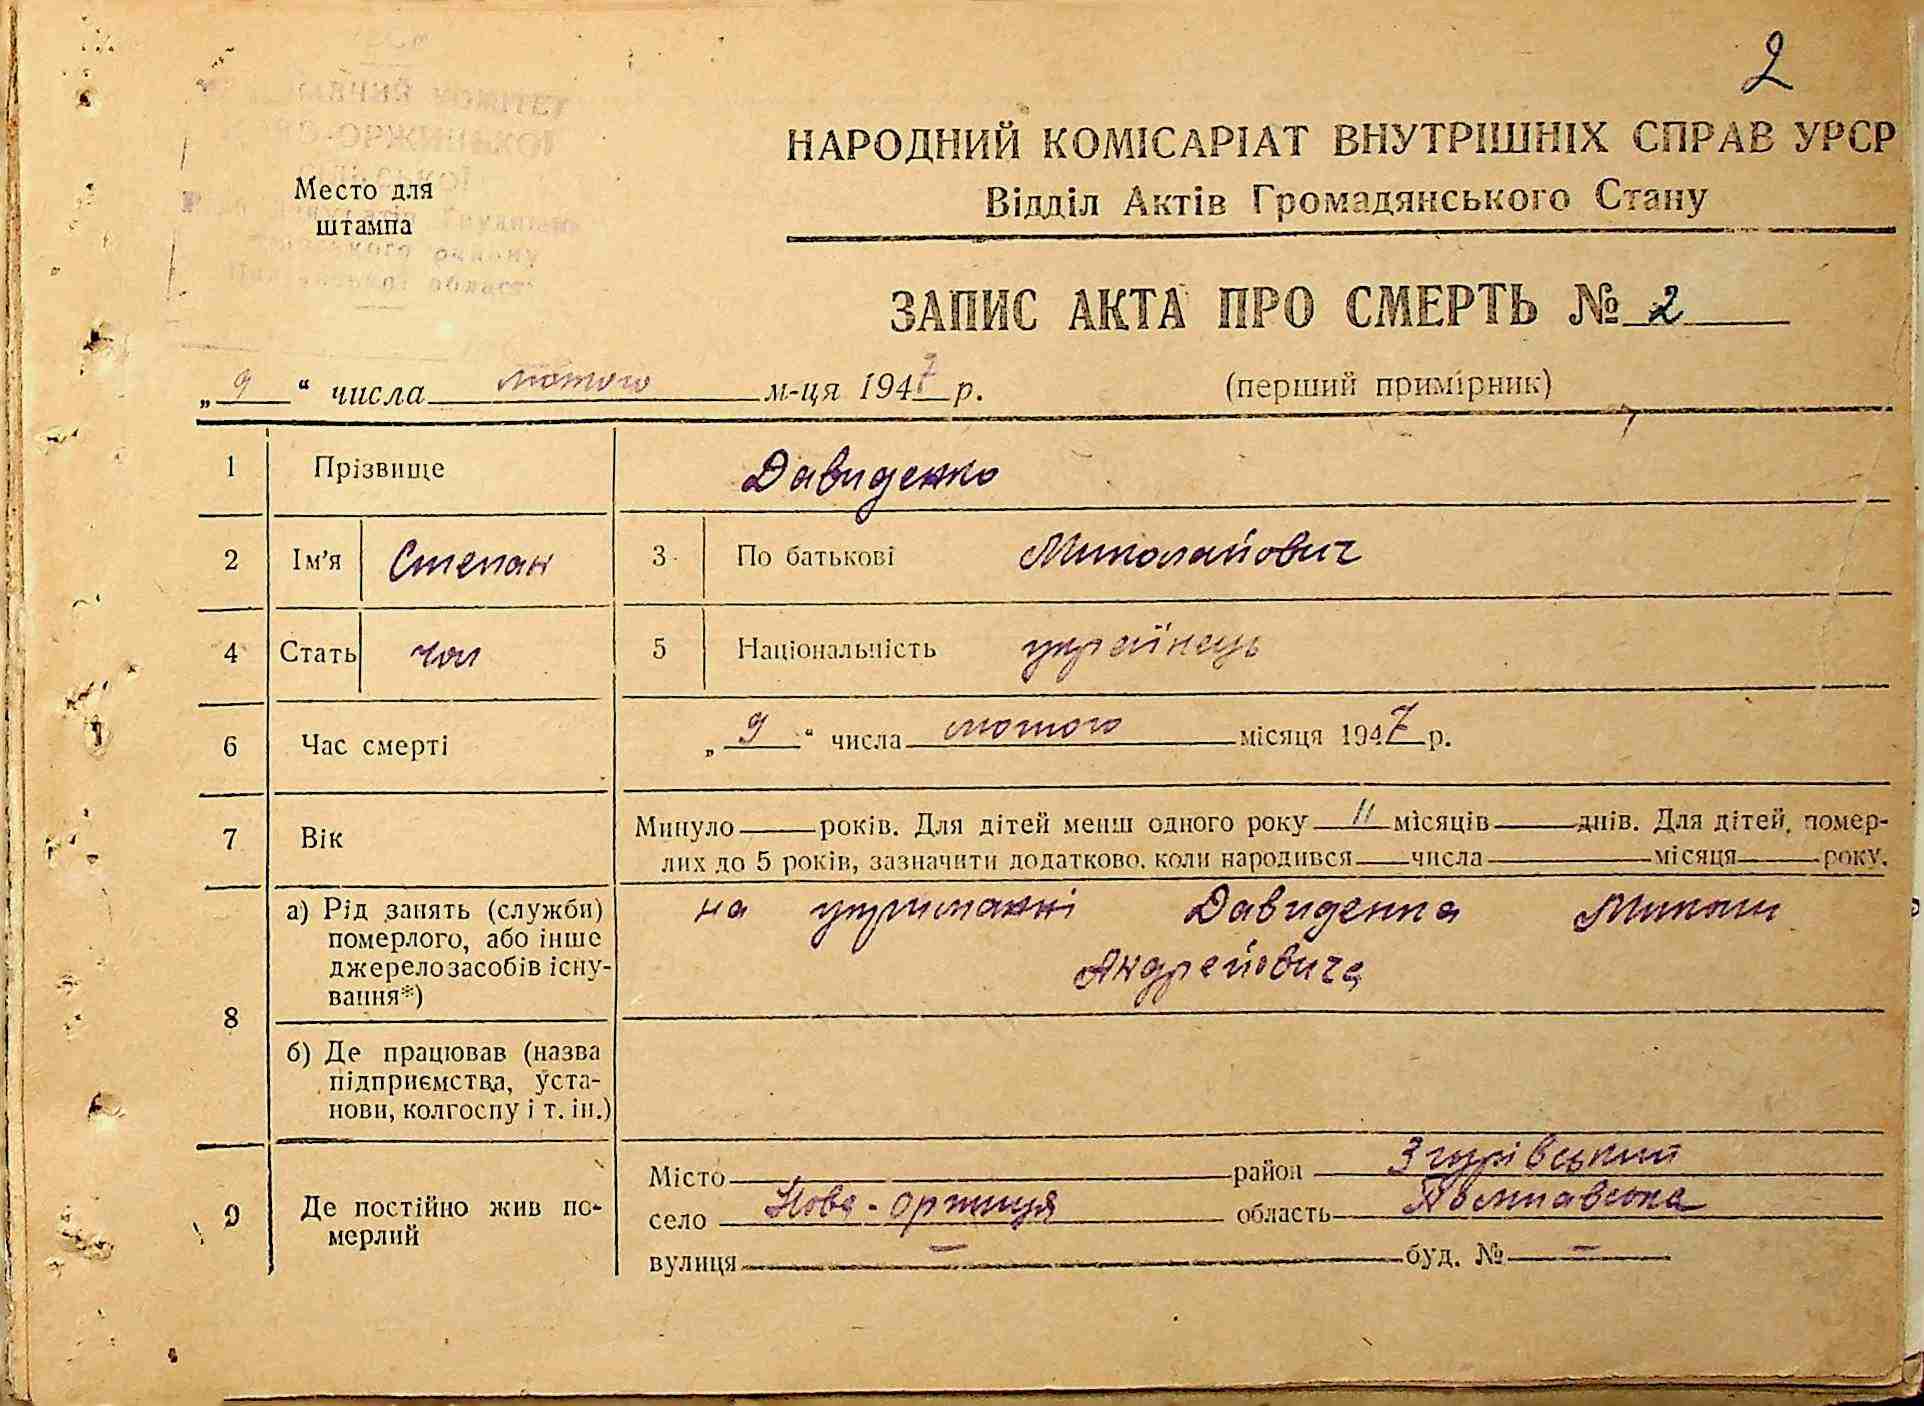 2
НАРОДНИЙ КОМІСАРІАТ ВНУТРІШНІХ СПРАВ УРСР
Відділ Актів Громадянського Стану
Место для
штампа
ЗАПИС АКТА ПРО СМЕРТЬ № 2
„ 9 “ числа лютого м-ця 1947 р.
(перший примірник)
1 Прізвище Давиденко
2 Ім'я Степан 3 По батькові Миколайович
4 Стать чол 5 Національність українець
6 Час смерті „ 9 “ числа лютого місяця 1947 р.
7 Вік Минуло ____ років. Для дітей менш одного року 11 місяців ____ днів. Для дітей, помер-
лих до 5 років, зазначити додатково, коли народився ____ числа ____ місяця ____ року.
8 а) Рід занять (служби)
померлого, або інше
джерело засобів існу-
вання*)
на утриманні Давиденка Миколи
Андрейовича
б) Де працював (назва
підприємства, уста-
нови, колгоспу і т. ін.)
9 Де постійно жив по-
мерлий
Місто ____ район Згурівський
село Нова-Оржиця область Полтавська
вулиця — буд. № —